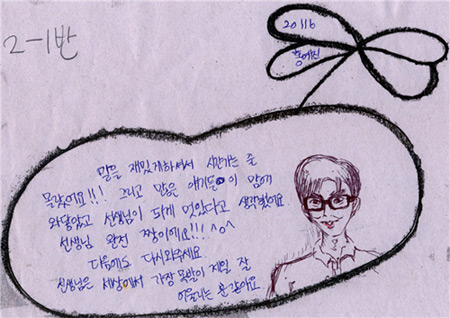 2-1반
20116
홍예진
말을 재밌게하셔서 시간가는 줄
몰랐어요!!! 그리고 많은 얘기들이 맘에
와닿았고 선생님이 되게 멋있다고 생각했어요
선생님 완전 짱이에요!!! ^o^
다음에도 다시와주세요
선생님은 세상에서 가장 목발이 제일 잘
어울리는 분 같아요